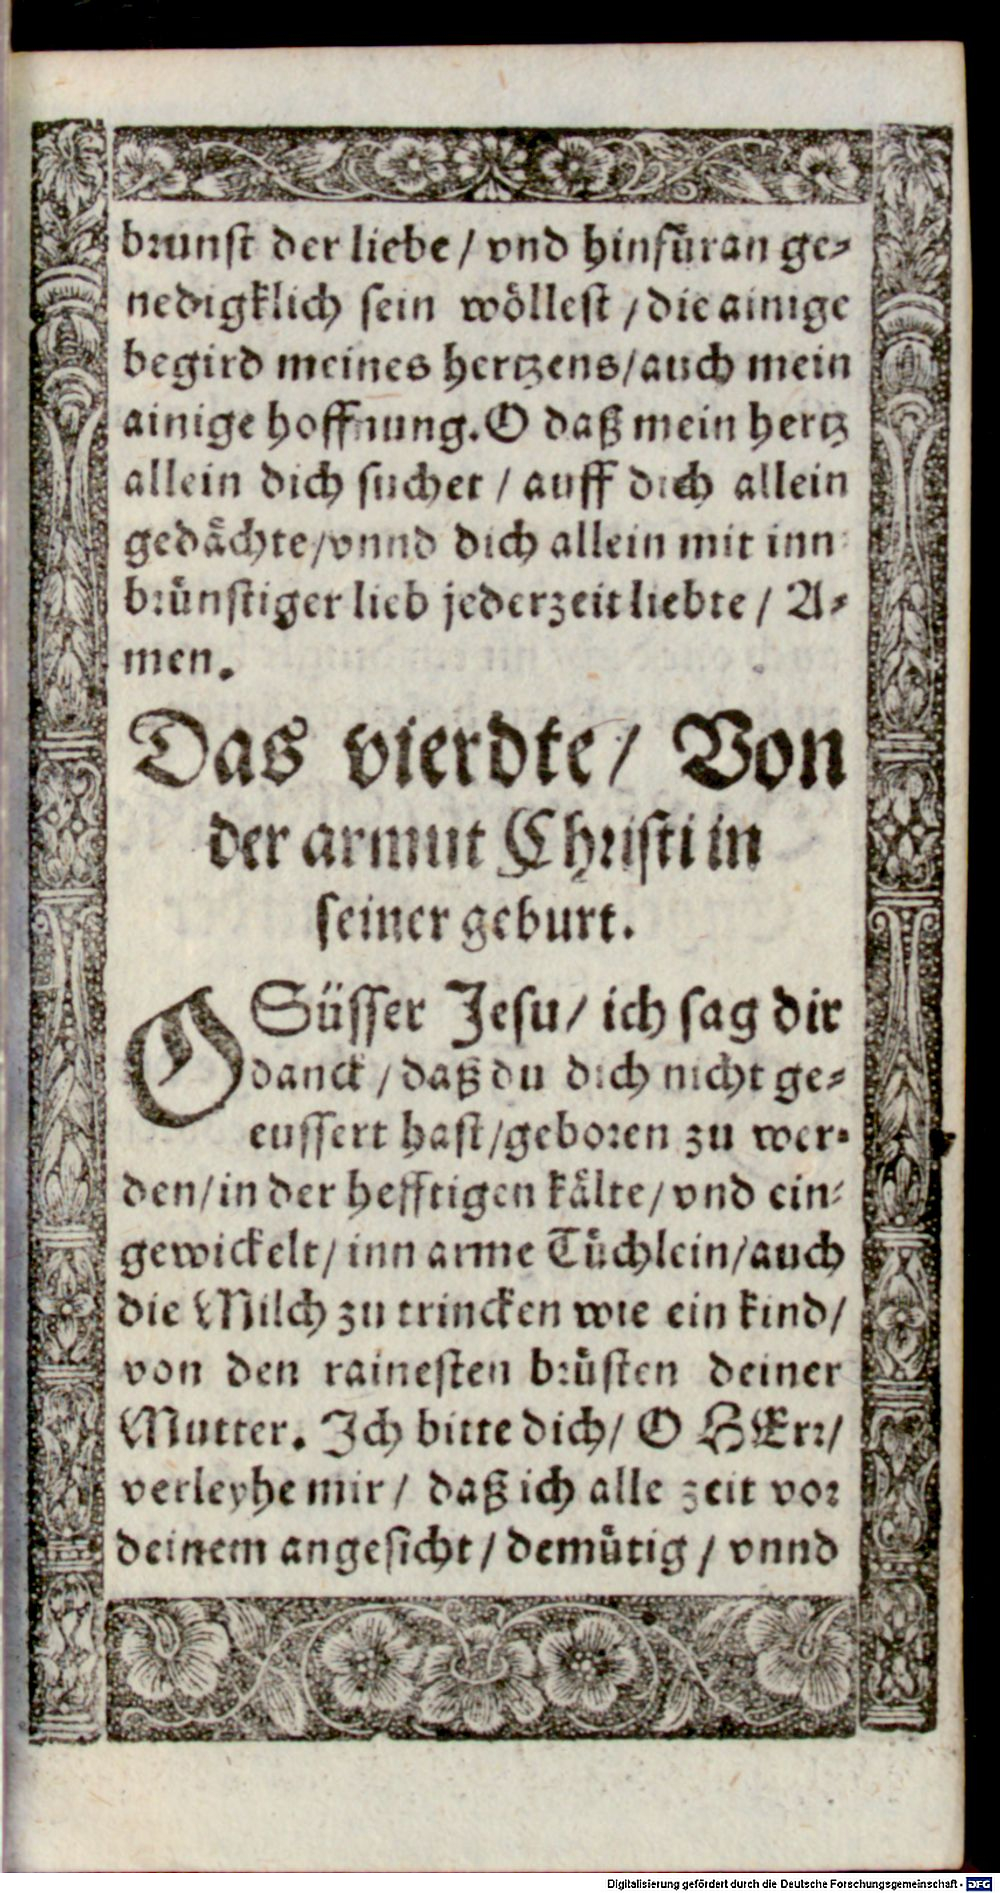 brunst der liebe / vnd hinfüran ge⸗
nedigklich sein wöllest / die ainige
begird meines hertzens / auch mein
ainige hoffnung. O daß mein hertz
allein dich suchet / auff dich allein
gedächte / vnnd dich allein mit inn⸗
brünstiger lieb jederzeit liebte / A⸗
men.
Das vierdte / Von
der armut Christi in
seiner geburt.
O Süsser Jesu / ich sag dir
danck / daß du dich nicht ge⸗
eussert hast / geboren zu wer⸗
den / in der hefftigen kälte / vnd ein⸗
gewickelt / inn arme Tüchlein / auch
die Milch zu trincken wie ein kind /
von den rainesten brüsten deiner
Mutter. Ich bitte dich / O HErr /
verleyhe mir / daß ich alle zeit vor
deinem angesicht / demütig / vnnd
Digitalisierung gefördert durch die Deutsche Forschungsgemeinschaft - DFG